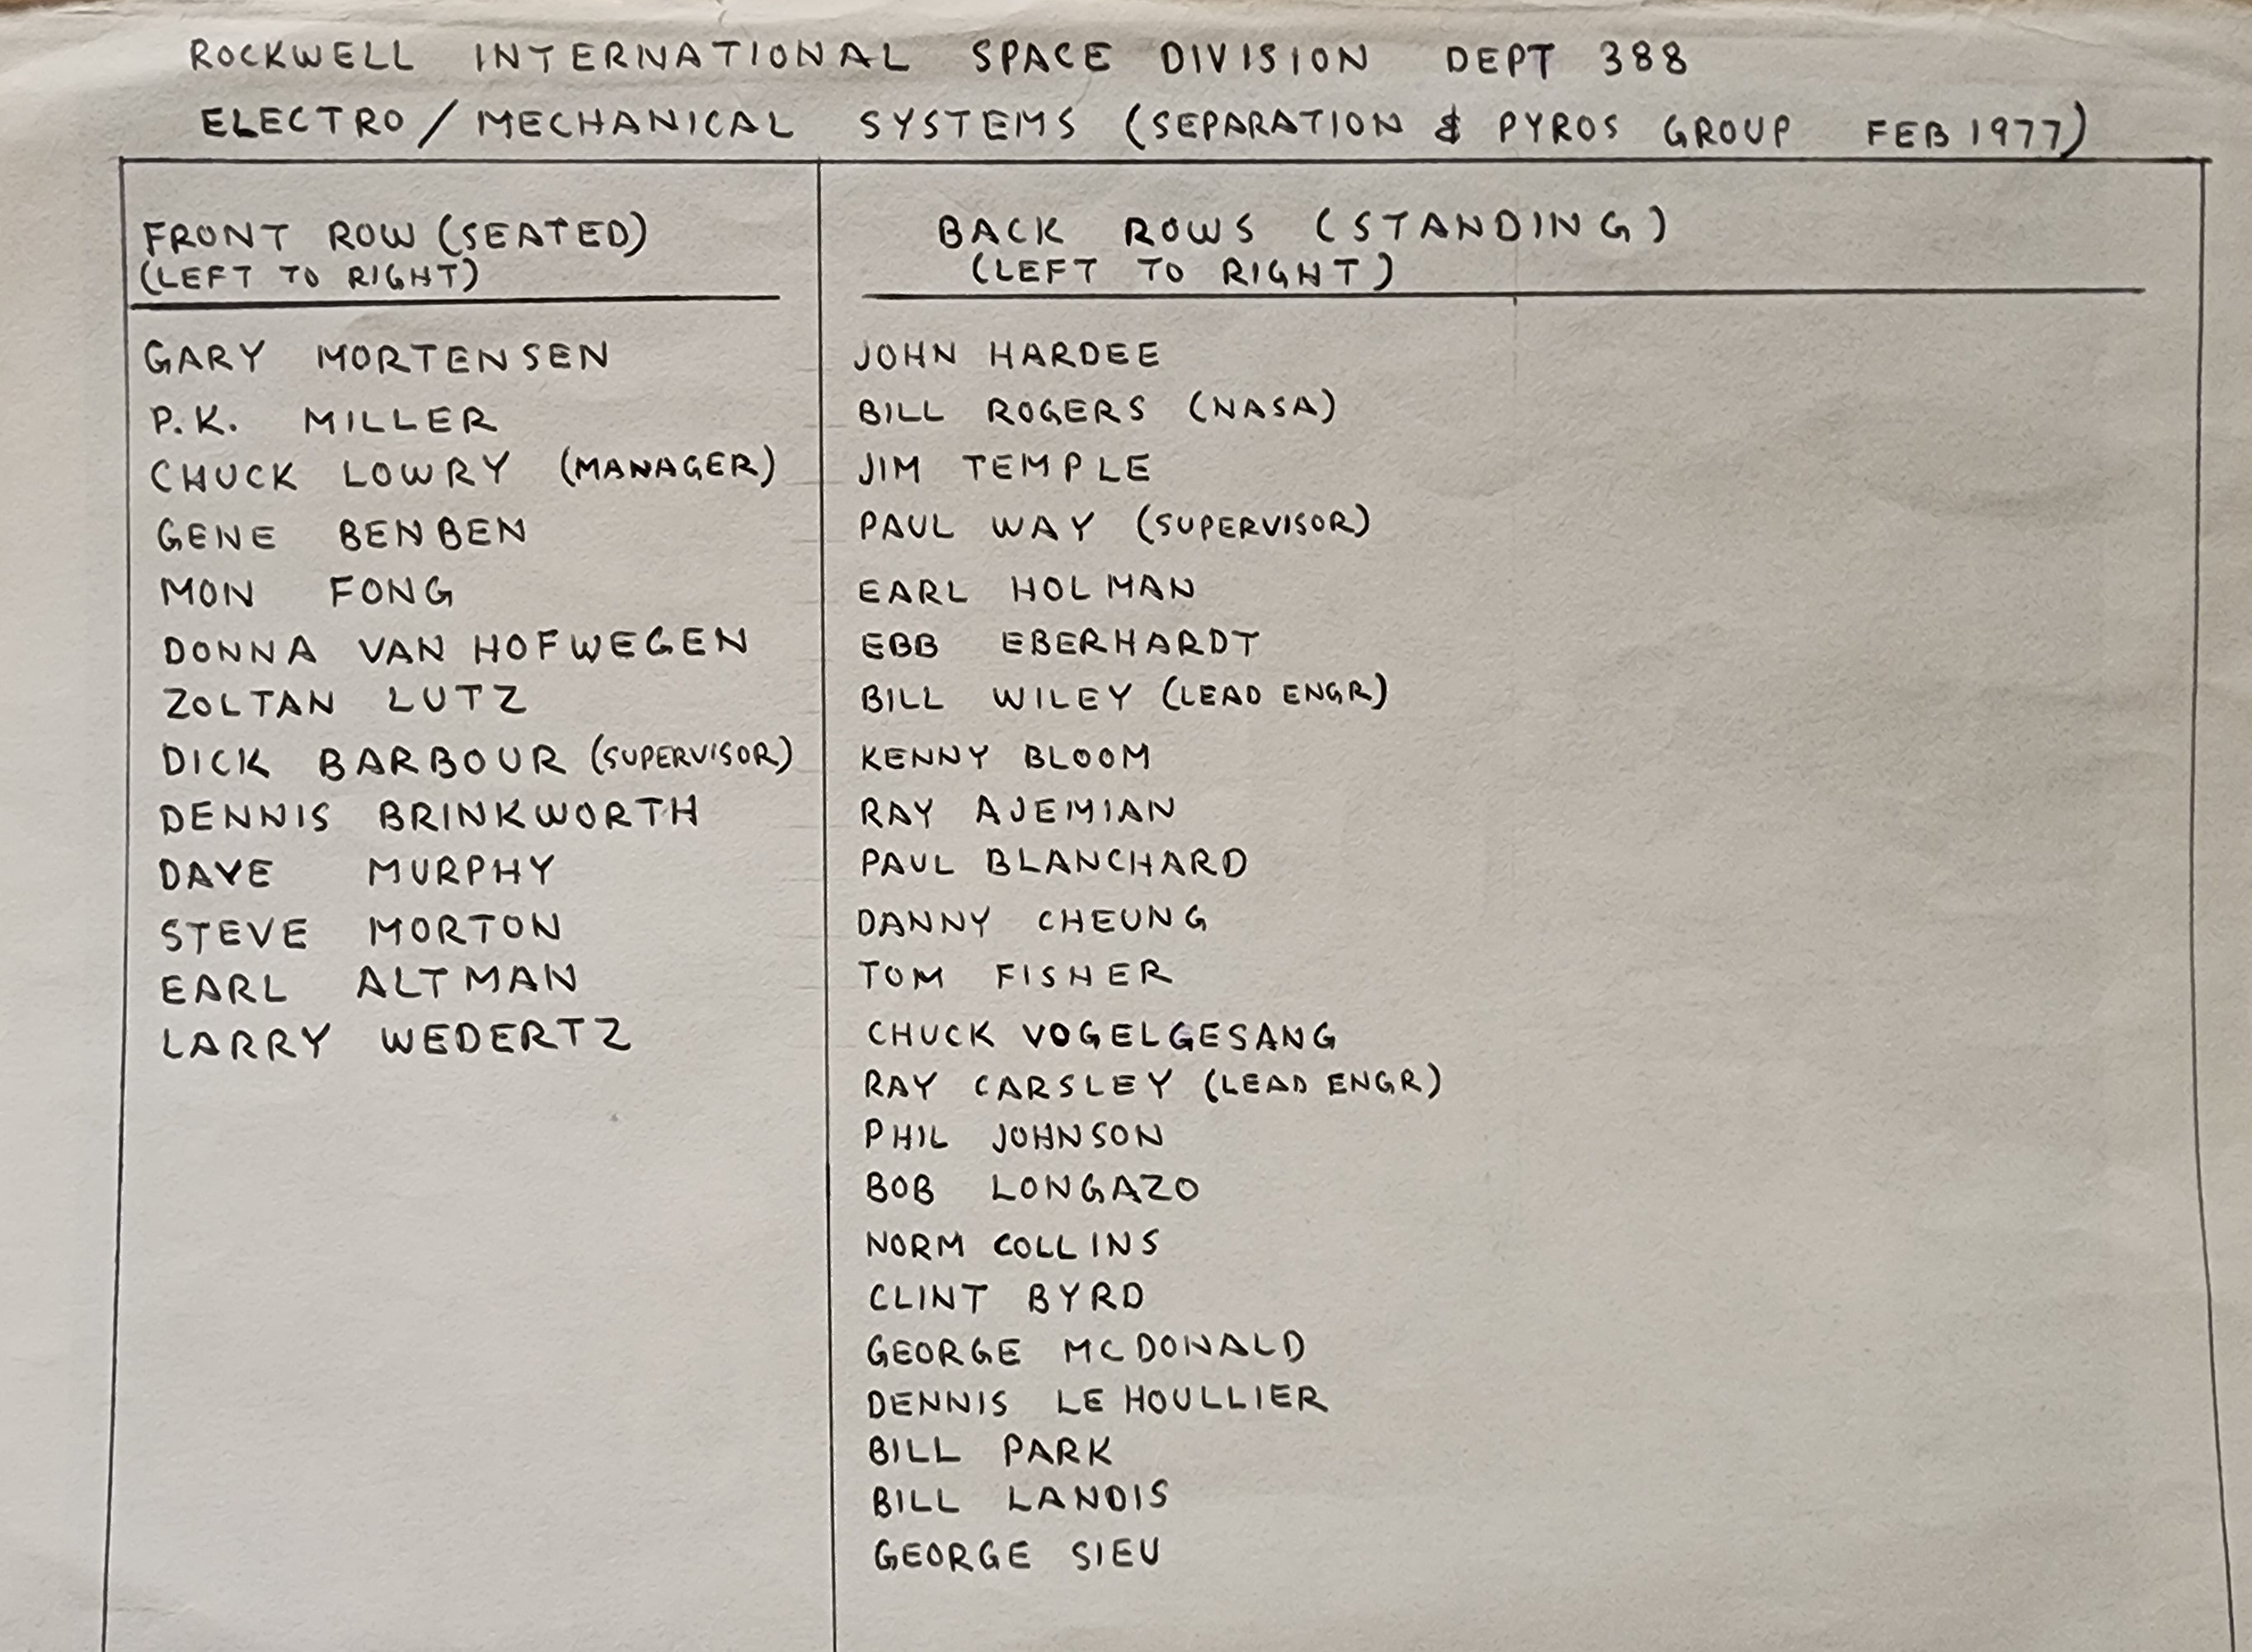 ROCKWELL INTERNATIONAL SPACE DIVISION DEPT 388
ELECTRO/MECHANICAL SYSTEMS (SEPARATION & PYROS GROUP FEB 1977)
FRONT ROW (SEATED)
(LEFT TO RIGHT)
GARY MORTENSEN
P.K. MILLER
CHUCK LOWRY (MANAGER)
GENE BENBEN
MON FONG
DONNA VAN HOFWEGEN
ZOLTAN LUTZ
DICK BARBOUR (SUPERVISOR)
DENNIS BRINKWORTH
DAVE MURPHY
STEVE MORTON
EARL ALTMAN
LARRY WEDERTZ
BACK ROWS (STANDING)
(LEFT TO RIGHT)
JOHN HARDEE
BILL ROGERS (NASA)
JIM TEMPLE
PAUL WAY (SUPERVISOR)
EARL HOLMAN
EBB EBERHARDT
BILL WILEY (LEAD ENGR)
KENNY BLOOM
RAY AJEMIAN
PAUL BLANCHARD
DANNY CHEUNG
TOM FISHER
CHUCK VOGELGESANG
RAY CARSLEY (LEAD ENGR)
PHIL JOHNSON
BOB LONGAZO
NORM COLLINS
CLINT BYRD
GEORGE MCDONALD
DENNIS LE HOULLIER
BILL PARK
BILL LANDIS
GEORGE SIEU